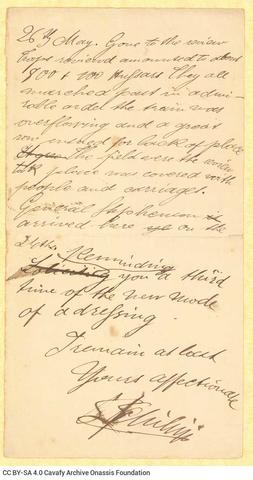 26th May. Gone to the review
Troops reviewed amounted to about
1700 + 100 Hussars They all
marched past in admi-
rable order the train was
overflowing and a great
row ensued for lack of place
The field were the review
took place was covered with
people and carriages.
General Stephenson
arrived here on the
24th Reminding
you a third
time of the new mode
of adressing.
I remain at last
Yours affectionate
CC BY-SA 4.0 Cavafy Archive Onassis Foundation